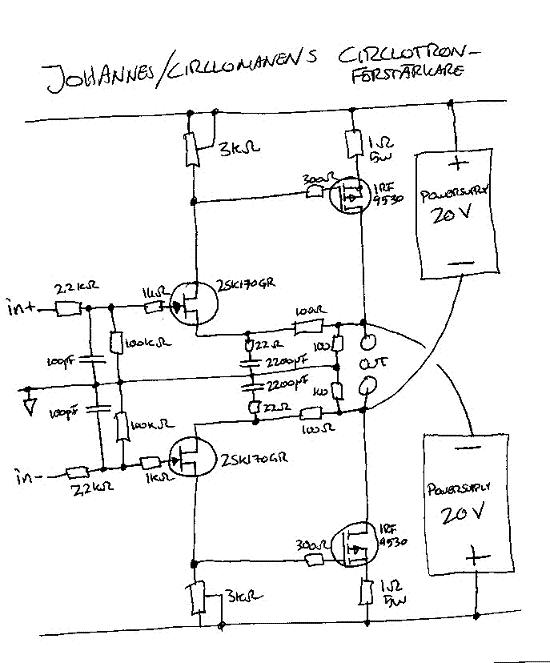 JOHANNES/CIRCLOMANENS CIRCLOTRON-
FÖRSTÄRKARE
3kΩ
1Ω
5W
300Ω
IRF
9530
+
POWERSUPPLY
20 V
−
2SK170GR
2,2kΩ
1kΩ
in+
100Ω
100kΩ
22Ω
10Ω
100pF
2200µF
OUT
2200µF
10Ω
100pF
22Ω
100kΩ
100Ω
in-
2,2kΩ
1kΩ
2SK170GR
−
POWERSUPPLY
20 V
+
IRF
9530
300Ω
3kΩ
1Ω
5W